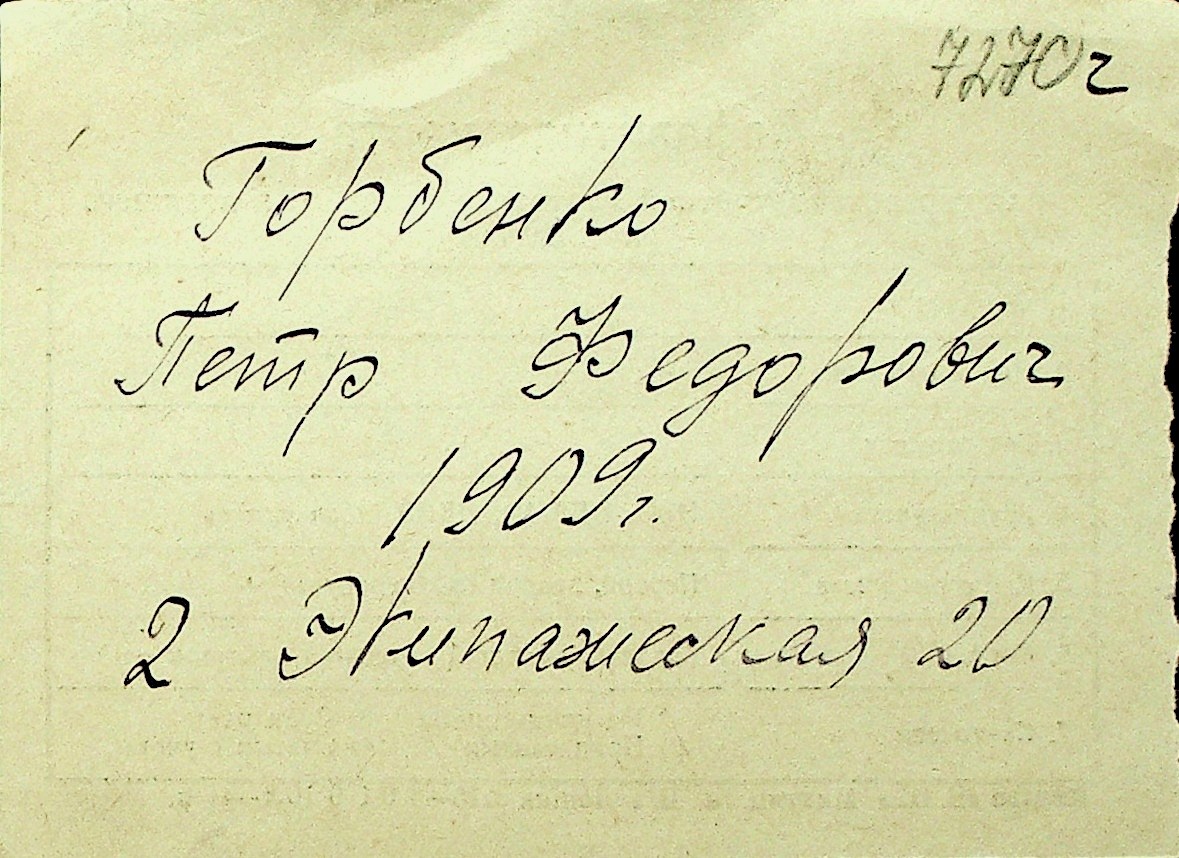 7270 г
Горбенко
Петр Федорович
1909г.
2 Экипажеская 20